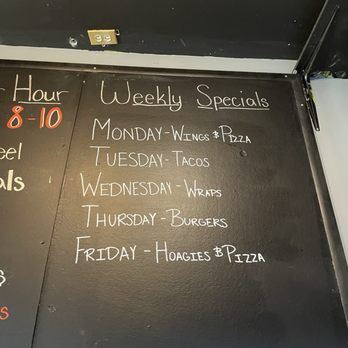 Hour
8-10
eel
als
s
s
Weekly Specials
Monday - Wings & Pizza
Tuesday - Tacos
Wednesday - Wraps
Thursday - Burgers
Friday - Hoagies & Pizza